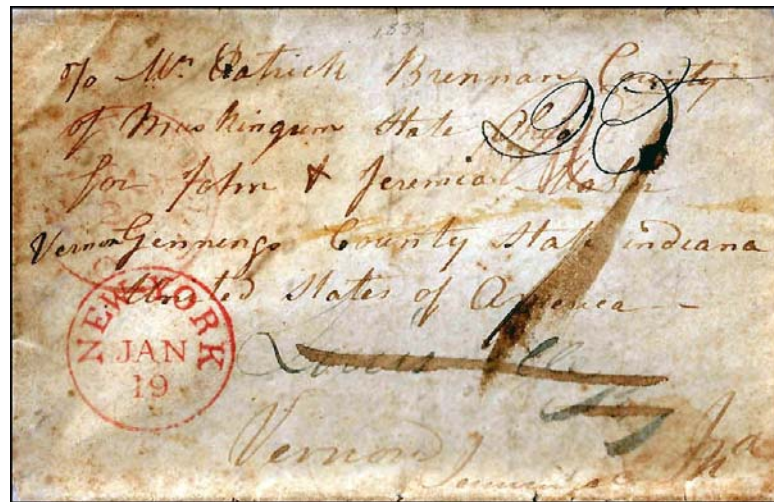 1839
To Mr. Patrick Brennan County
of Muskingum State Ohio
for John & Jeremia
Vernon Jennings County State indiana
United States of America
NEW YORK
JAN
19
Louisville
Ky
Vernon
Ina